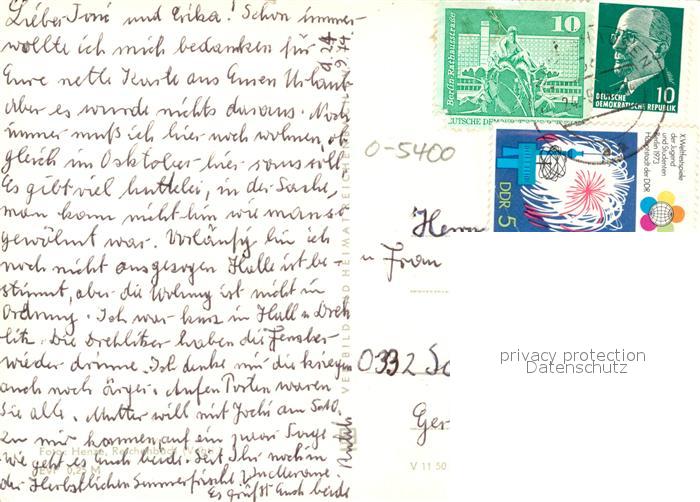 Lieber Toni und Erika! Schon immer
wollte ich mich bedanken für
Eure nette Karte aus Euren Urlaub
Aber es wurde nichts daraus. Noch
immer muß ich hier noch wohnen, ob
gleich im Osktober hier raus soll
Es gibt viel in der Sache,
man kann nicht hin wie man so
gewöhnt war. Vorläufig bin ich
noch nicht ausgezogen Halle ist be-
stimmt, aber die Wohnung ist nicht in
Ordnung. Ich war kurz in Hall u Dreh
litz. Die Drehlitzer haben die Fenster
wieder drinne. Ich denke mir die kriegen
auch noch ärger. Aufen Posten waren
Sie alle. Mutter will mit Jochi am Sa 10.
zu mir kommen, auf ein zwei Tage
Wie geht es Euch beide. Seit Ihr noch in
der Herbstlichen Sommerfrische
Es grüßt Euch beide
d. 24.
9. 74.
VERB BILD UND HEIMAT REICHENBACH
Foto: Henze, Reichenbach (V
EVP 0,25 M
V 11 50
Berlin Rathausstraße
10
DEUTSCHE DEM
DEUTSCHE
DEMOKRATISCHE REPUBLIK
10
DDR 5
X. Weltfestspiele
der Jugend
und Studenten
Berlin 1973
Hauptstadt der DDR
0-5400
Herrn
u Frau
privacy protection
Datenschutz